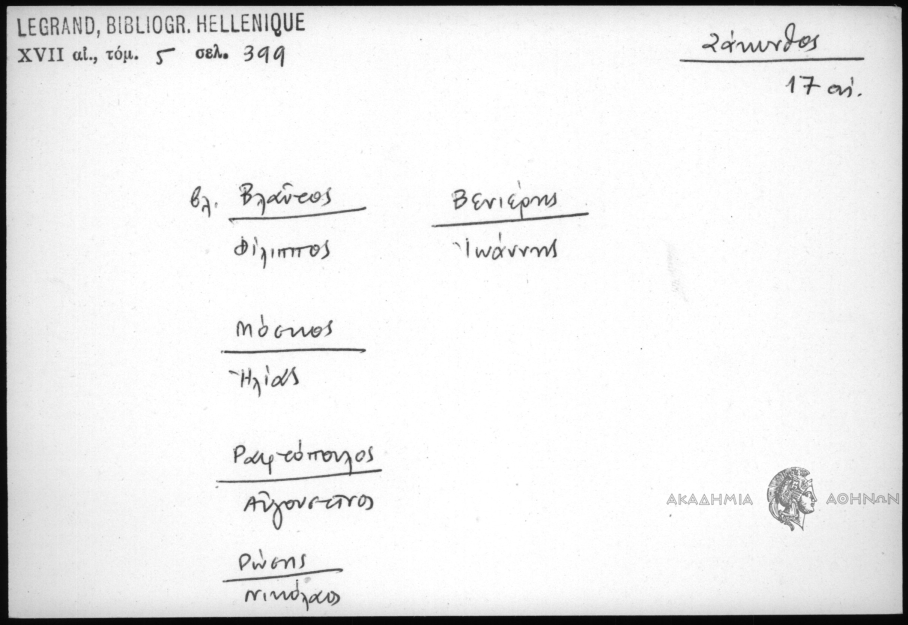 LEGRAND, BIBLIOGR. HELLENIQUE
XVII αἰ., τόμ. 5 σελ. 399
Ζάκυνθος
17 αἰ.
βλ. Βλαῦτος Βενιέρης
Φίλιππος Ἰωάννης
Μόσκος
Ἠλίας
Ραφτόπουλος
Αὐγουστῖνος
Ρώσης
Νικόλαος
ΑΚΑΔΗΜΙΑ ΑΘΗΝΩΝ